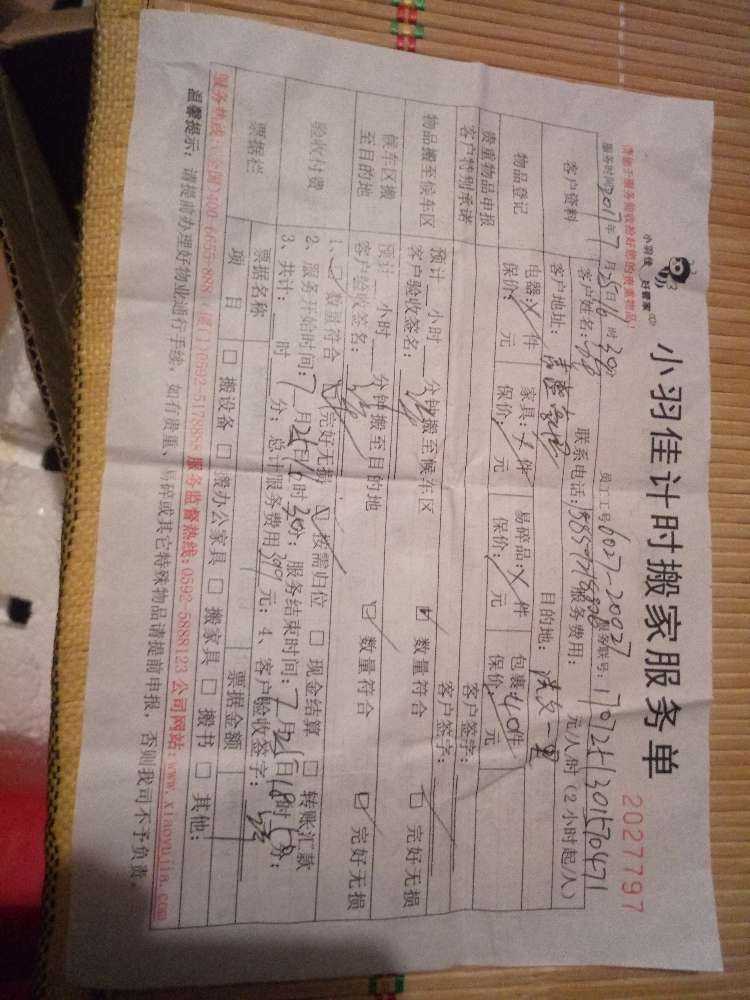 小羽佳 好管家
小羽佳计时搬家服务单
2027797
请做于服务前收拾好您的贵重物品!
服务时间:2017年7月25日16时30分 员工工号:0027-20027 服务联号:170725130157047
客户资料
客户姓名: 联系电话: 服务费用: 元/人/时(2小时起/人)
客户地址: 目的地:
物品登记
电器: 件 家具: 件 易碎品: 件 包裹:40件
保价: 元 保价: 元 保价: 元 保价: 元
贵重物品申报 客户签字:
客户特别承诺 客户签字:
物品搬至候车区
预计 小时 分钟搬至候车区 数量符合 完好无损
客户验收签名:
候车区搬至目的地
预计 小时 分钟搬至目的地 数量符合 完好无损
客户验收签名:
验收付费
1、 数量符合 完好无损 按需归位 □ 现金结算 □ 转账汇款
2、服务开始时间:7月25日16时30分;服务结束时间:7月25日18时 分;
3、共计: 时 分;总计服务费用300元;4、客户验收签字:
票据栏
票据名称 票据金额
项 目 □ 搬设备 □ 搬办公家具 □ 搬家具 □ 搬书 □ 其他:
服务热线:(全国)400-6655-888 (厦门)0592-5178888 服务监督热线:0592-5888123 公司网站:www.xiaoyujia.com
温馨提示:请提前办理好物业通行手续,如有贵重、易碎或其它特殊物品请提前申报,否则我司不予负责。